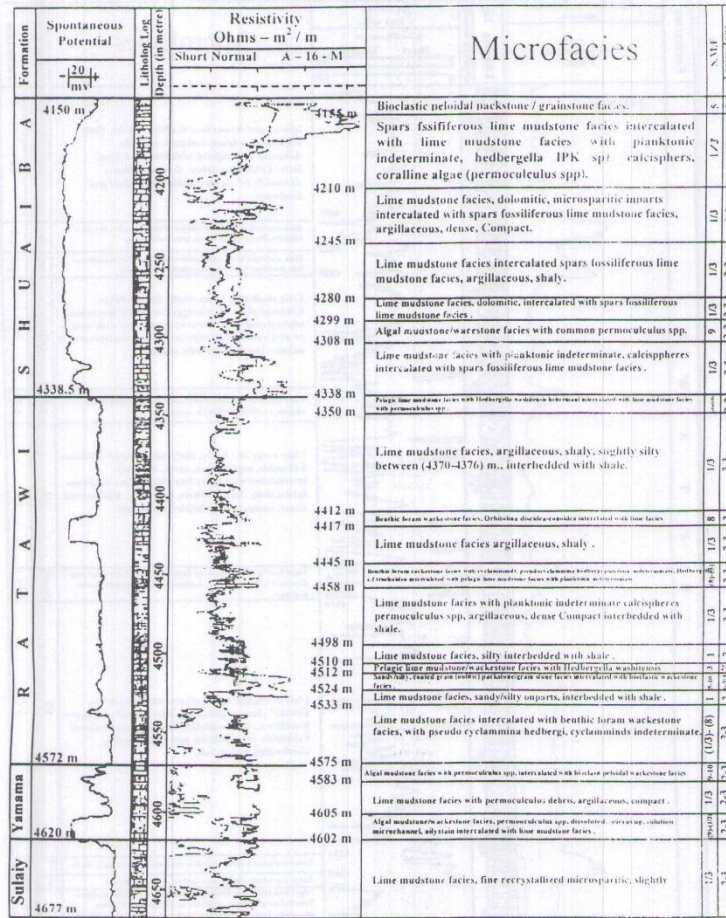 Formation
Spontaneous
Potential
-|20|+
mv
Litholog Log
Depth (in metre)
Resistivity
Ohms – m2 / m
Short Normal A – 16 - M
Microfacies
S.M.F
SHUAIBA
RATAWI
Yamama
Sulaiy
4150 m
4338.5 m
4572 m
4620 m
4677 m
4200
4250
4300
4350
4400
4450
4500
4550
4600
4650
4155 m
4210 m
4245 m
4280 m
4299 m
4308 m
4338 m
4350 m
4412 m
4417 m
4445 m
4458 m
4498 m
4510 m
4512 m
4524 m
4533 m
4575 m
4583 m
4605 m
4602 m
Bioclastic peloidal packstone / grainstone facies.
5
Spars fssififerous lime mudstone facies intercalated
with lime mudstone facies with planktonic
indeterminate, hedbergella IPK spt calcisphers,
coralline algae (permoculculus spp).
1/3
Lime mudstone facies, dolomitic, microsparitic inparts
intercalated with spars fossiliferous lime mudstone facies,
argillaceous, dense, Compact.
1/3
Lime mudstone facies intercalated spars fossiliferous lime
mudstone facies, argillaceous, shaly.
1/3
Lime mudstone facies, dolomitic, intercalated with spars fossiliferous
lime mudstone facies .
1/3
Algal mudstone/wacestone facies with common permoculculus spp.
9
Lime mudstone facies with planktonic indeterminate, calcisppheres
intercalated with spars fossiliferous lime mudstone facies .
1/3
Pelagic lime mudstone facies with Hedbergella washitensis intercalated with lime mudstone facies
with permoculculus spp
Lime mudstone facies, argillaceous, shaly, slightly silty
between (4370-4376) m., interbedded with shale.
1/3
Benthic foram wackestone facies, Orbitolina discoidea-conoidea intercalated with lime facies
8
Lime mudstone facies argillaceous, shaly .
1/3
Benthic foram wackestone facies with cyclamminds,
intercalated with pelagic lime mudstone facies with planktonic
Lime mudstone facies with planktonic indeterminate calcispheres
permoculculus spp, argillaceous, dense Compact interbedded with
shale.
1/3
Lime mudstone facies, silty interbedded with shale .
1
Pelagic lime mudstone/wackestone facies with Hedbergella washitensis
3
Sandy/silty, coated grain (oolitic) packstone/grain stone facies intercalated with bioclastic wackestone
facies .
Lime mudstone facies, sandy/silty onparts, interbedded with shale .
1
Lime mudstone facies intercalated with benthic foram wackestone
facies, with pseudo cyclammina hedbergi, cyclamminds indeterminate.
(1/3)- (8)
2-3
Algal mudstone facies with permoculculus spp, intercalated with bioclasts peloidal wackestone facies
9-10
2-3
Lime mudstone facies with permoculculus debris, argillaceous, compact .
1/3
2-3
Algal mudstone/wackestone facies, permoculculus spp, dissolued, solution
microchannel, oilystain intercalated with lime mudstone facies .
2-3
Lime mudstone facies, fine recrystallized microsparitic, slightly
1/3
2-3